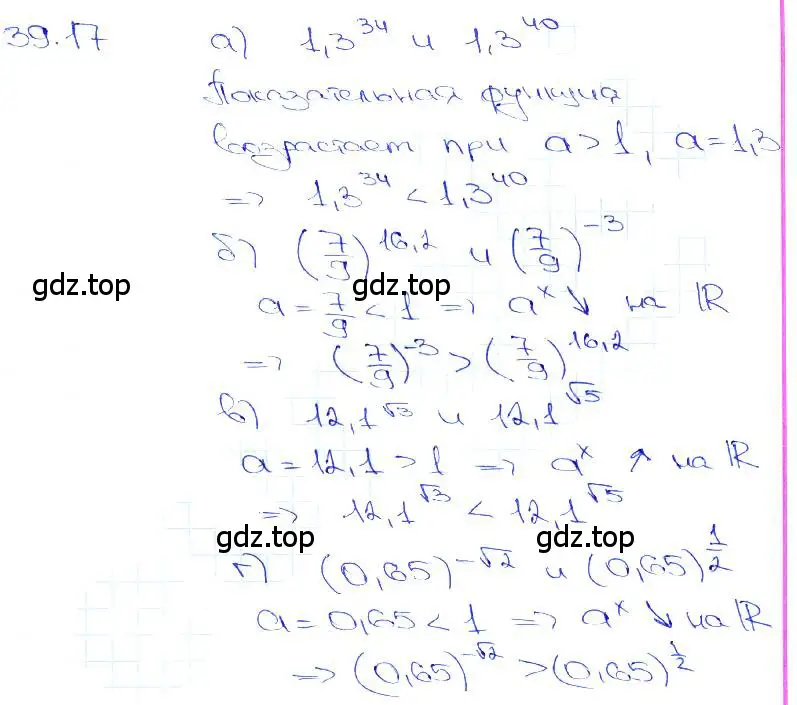 39.17 а) 1,3^34 и 1,3^40
Показательная функция
возрастает при a>1, a=1,3
=> 1,3^34 < 1,3^40
б) (7/9)^16,2 и (7/9)^-3
gdz.top gdz.top
a = 7/9 < 1 => a^x ↓ на ℝ
=> (7/9)^-3 > (7/9)^16,2
в) 12,1^√3 и 12,1^√5
a = 12,1 > 1 => a^x ↑ на ℝ
=> 12,1^√3 < 12,1^√5
gdz.top gdz.top
г) (0,65)^-√2 и (0,65)^1/2
a = 0,65 < 1 => a^x ↓ на ℝ
=> (0,65)^-√2 > (0,65)^1/2